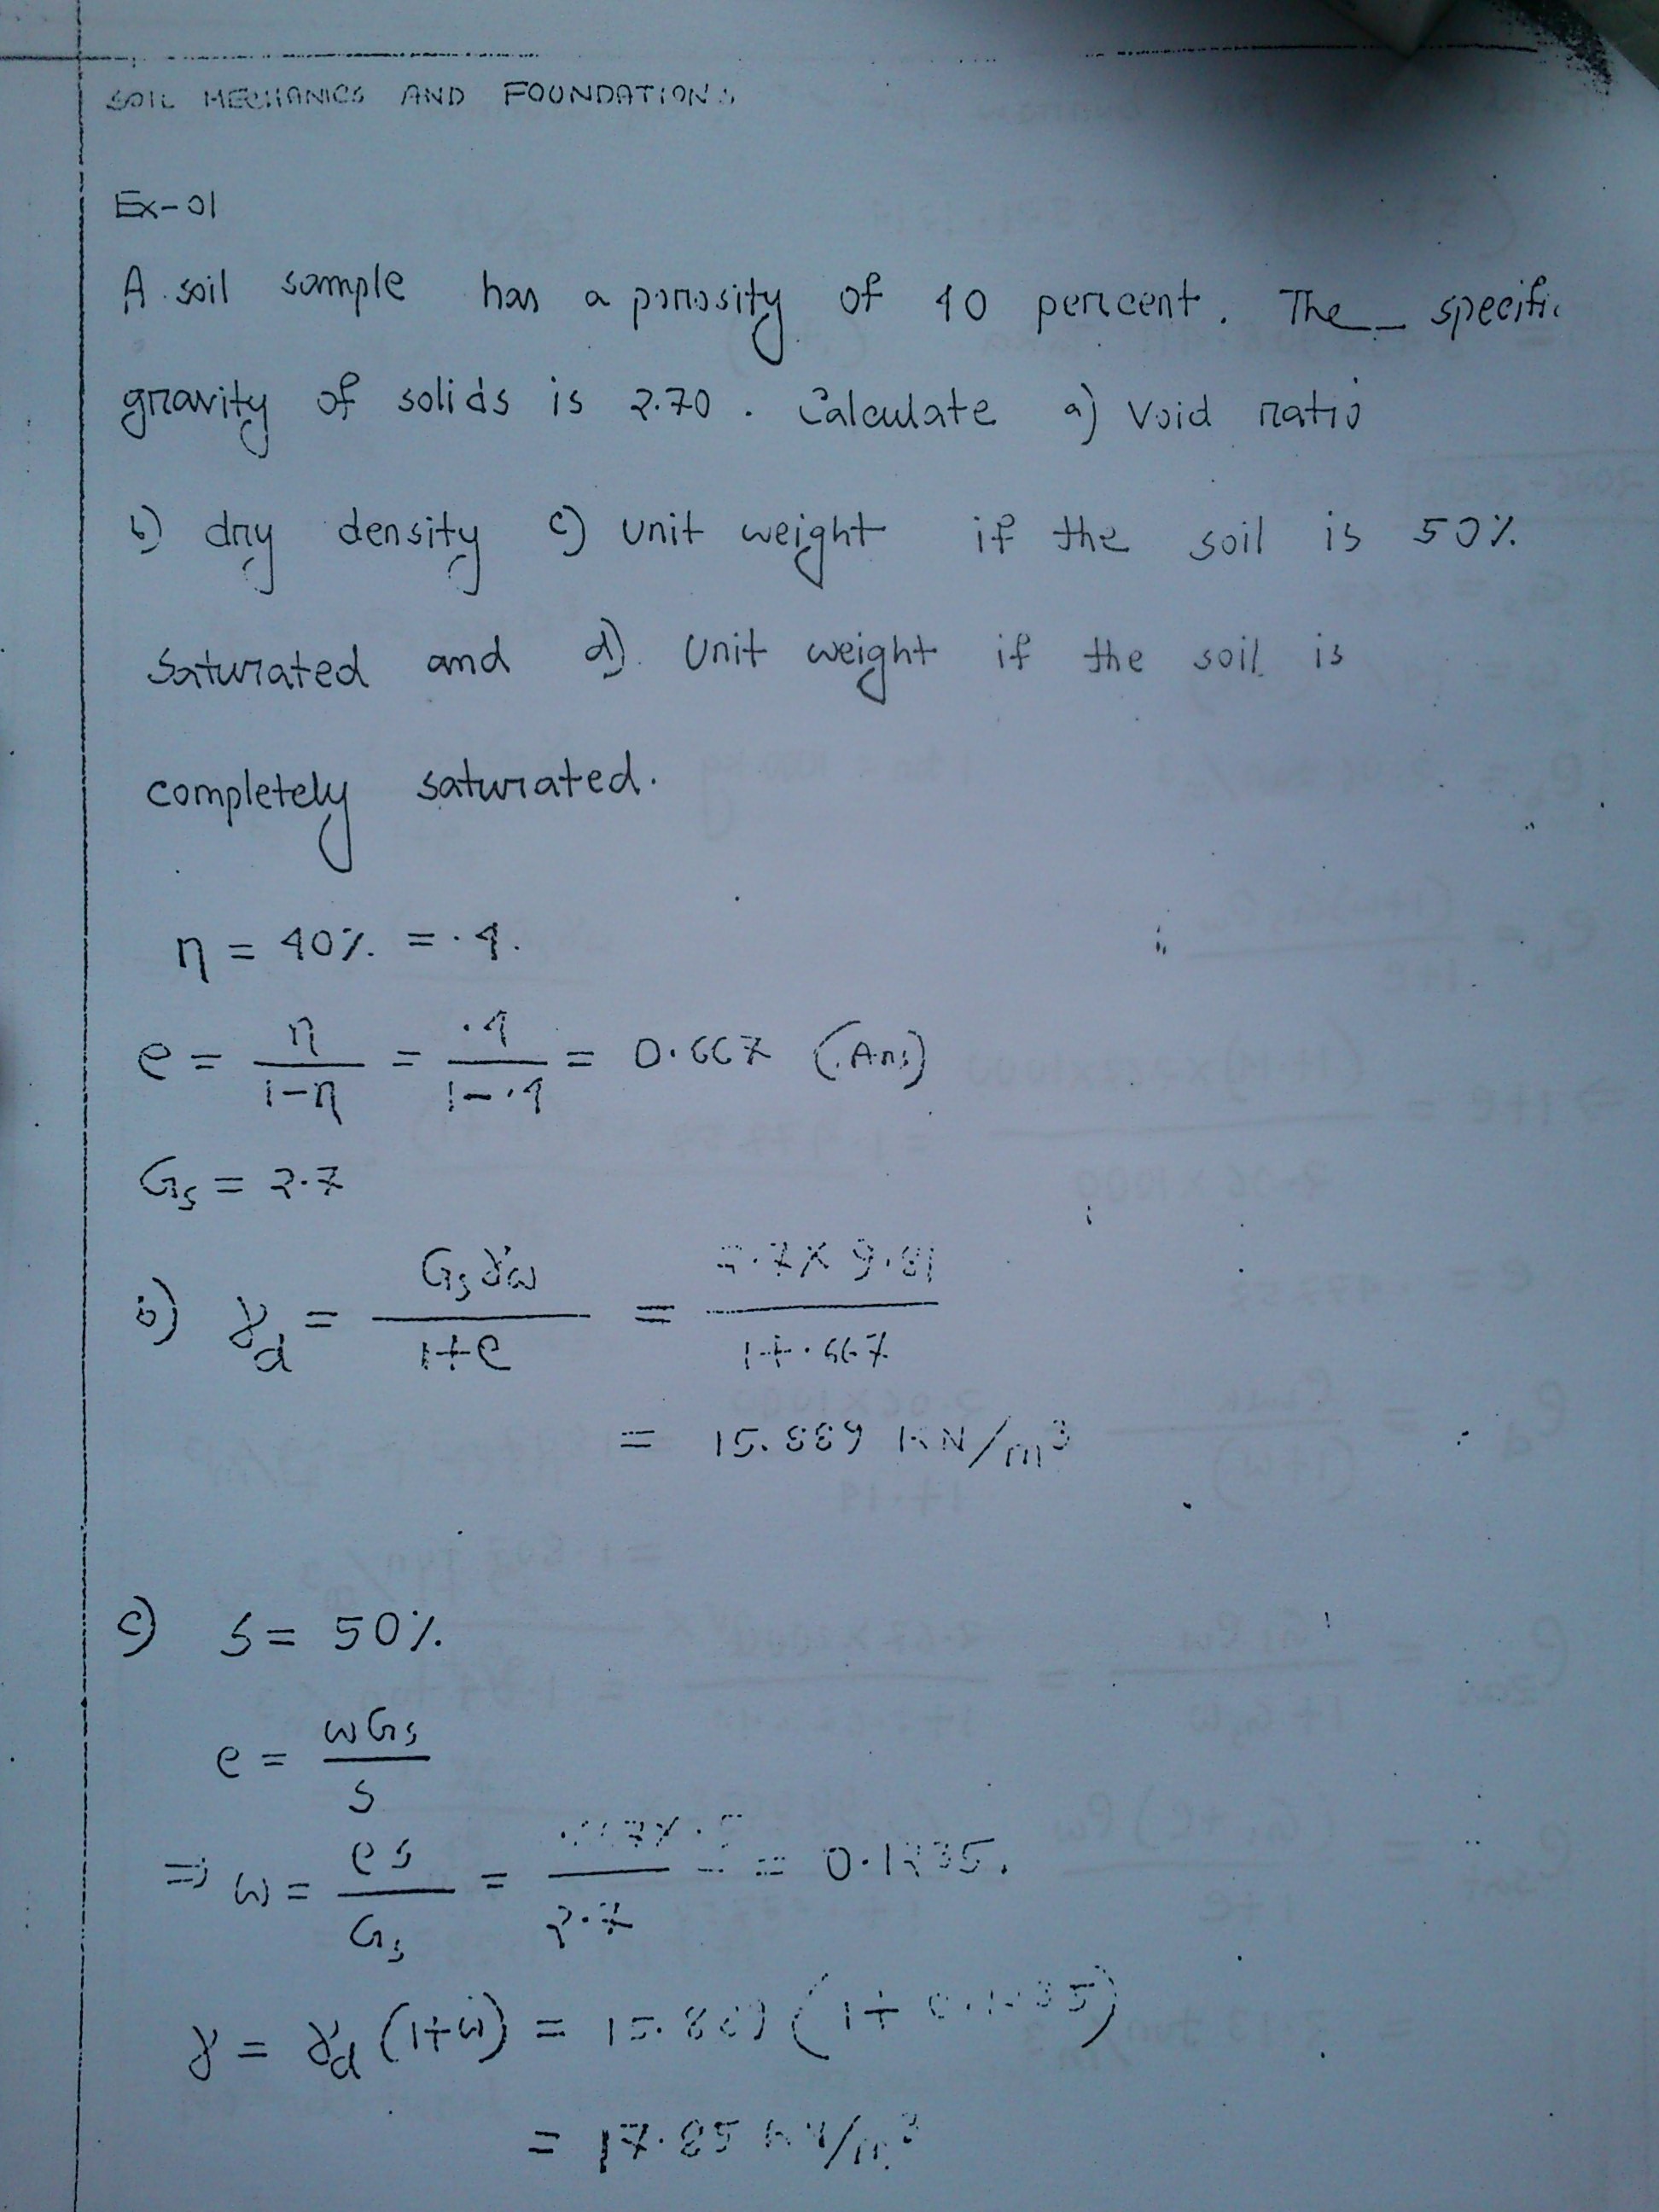 SOIL MECHANICS AND FOUNDATIONS
Ex-01
A soil sample has a porosity of 40 percent. The specific
gravity of solids is 2.70. Calculate a) Void ratio
b) dry density c) unit weight if the soil is 50%
saturated and d) Unit weight if the soil is
completely saturated.
η = 40% = .4.
e = η/(1-η) = .4/(1-.4) = 0.667 (Ans)
Gs = 2.7
b) γd = Gsγω/(1+e) = 2.7×9.81/(1+.667)
= 15.889 KN/m³
c) S = 50%
e = ωGs/s
⇒ ω = es/Gs = .667×.5/2.7 = 0.1235.
γ = γd (1+ω) = 15.889 (1+0.1235)
= 17.85 kN/m³